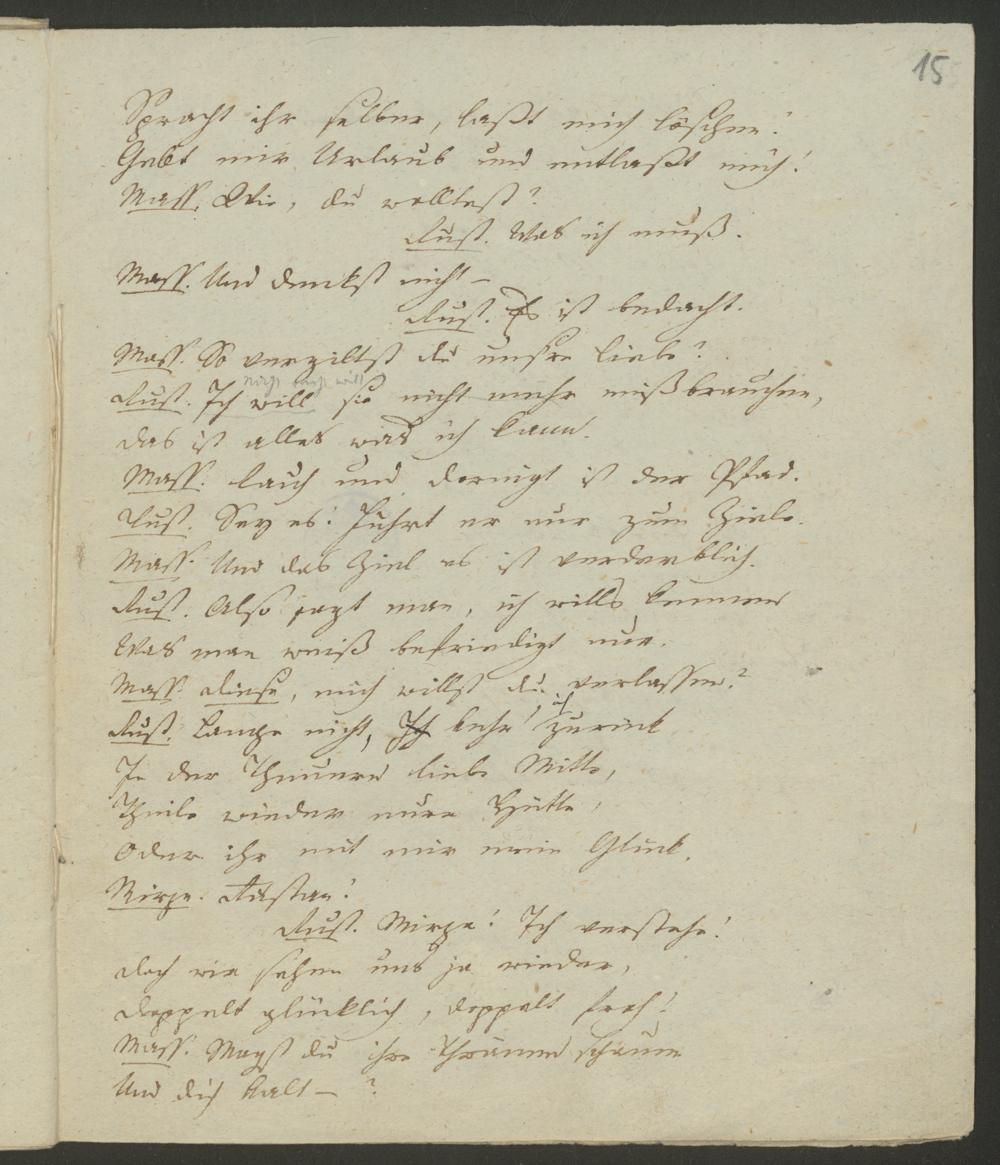 15
Spracht ihr selber, laßt mich löschen!
Gebt mir Urlaub und entlaßt mich!
Mass. Wie, du wolltest?
Rust. Was ich muß.
Mass. Und denkst nicht –
Rust. Es ist bedacht.
Mass. So vergiltst du unsre Liebe?
Rust. Ich will sie nicht mehr mißbrauchen,
Das ist alles was ich kann.
Mass. Rauh und dornigt ist der Pfad.
Rust. Sey es! Führt er nur zum Ziele.
Mass. Und das Ziel es ist verderblich.
Rust. Also sagt man, ich wills kennen
Was man weiß befriedigt nur.
Mass. Diese, mich willst du verlassen?
Rust. Lange nicht, Ich kehr' ich zurück
In der Theuern liebe Mitte,
Theile wieder eure Hütte,
Oder ihr mit mir mein Glück.
Mirza. Rustan!
Rust. Mirza! Ich verstehe!
Doch wir sehen uns ja wieder,
Doppelt glücklich, doppelt froh!
Mass. Magst du ihre Thränen schauen
Und dich kalt – ?